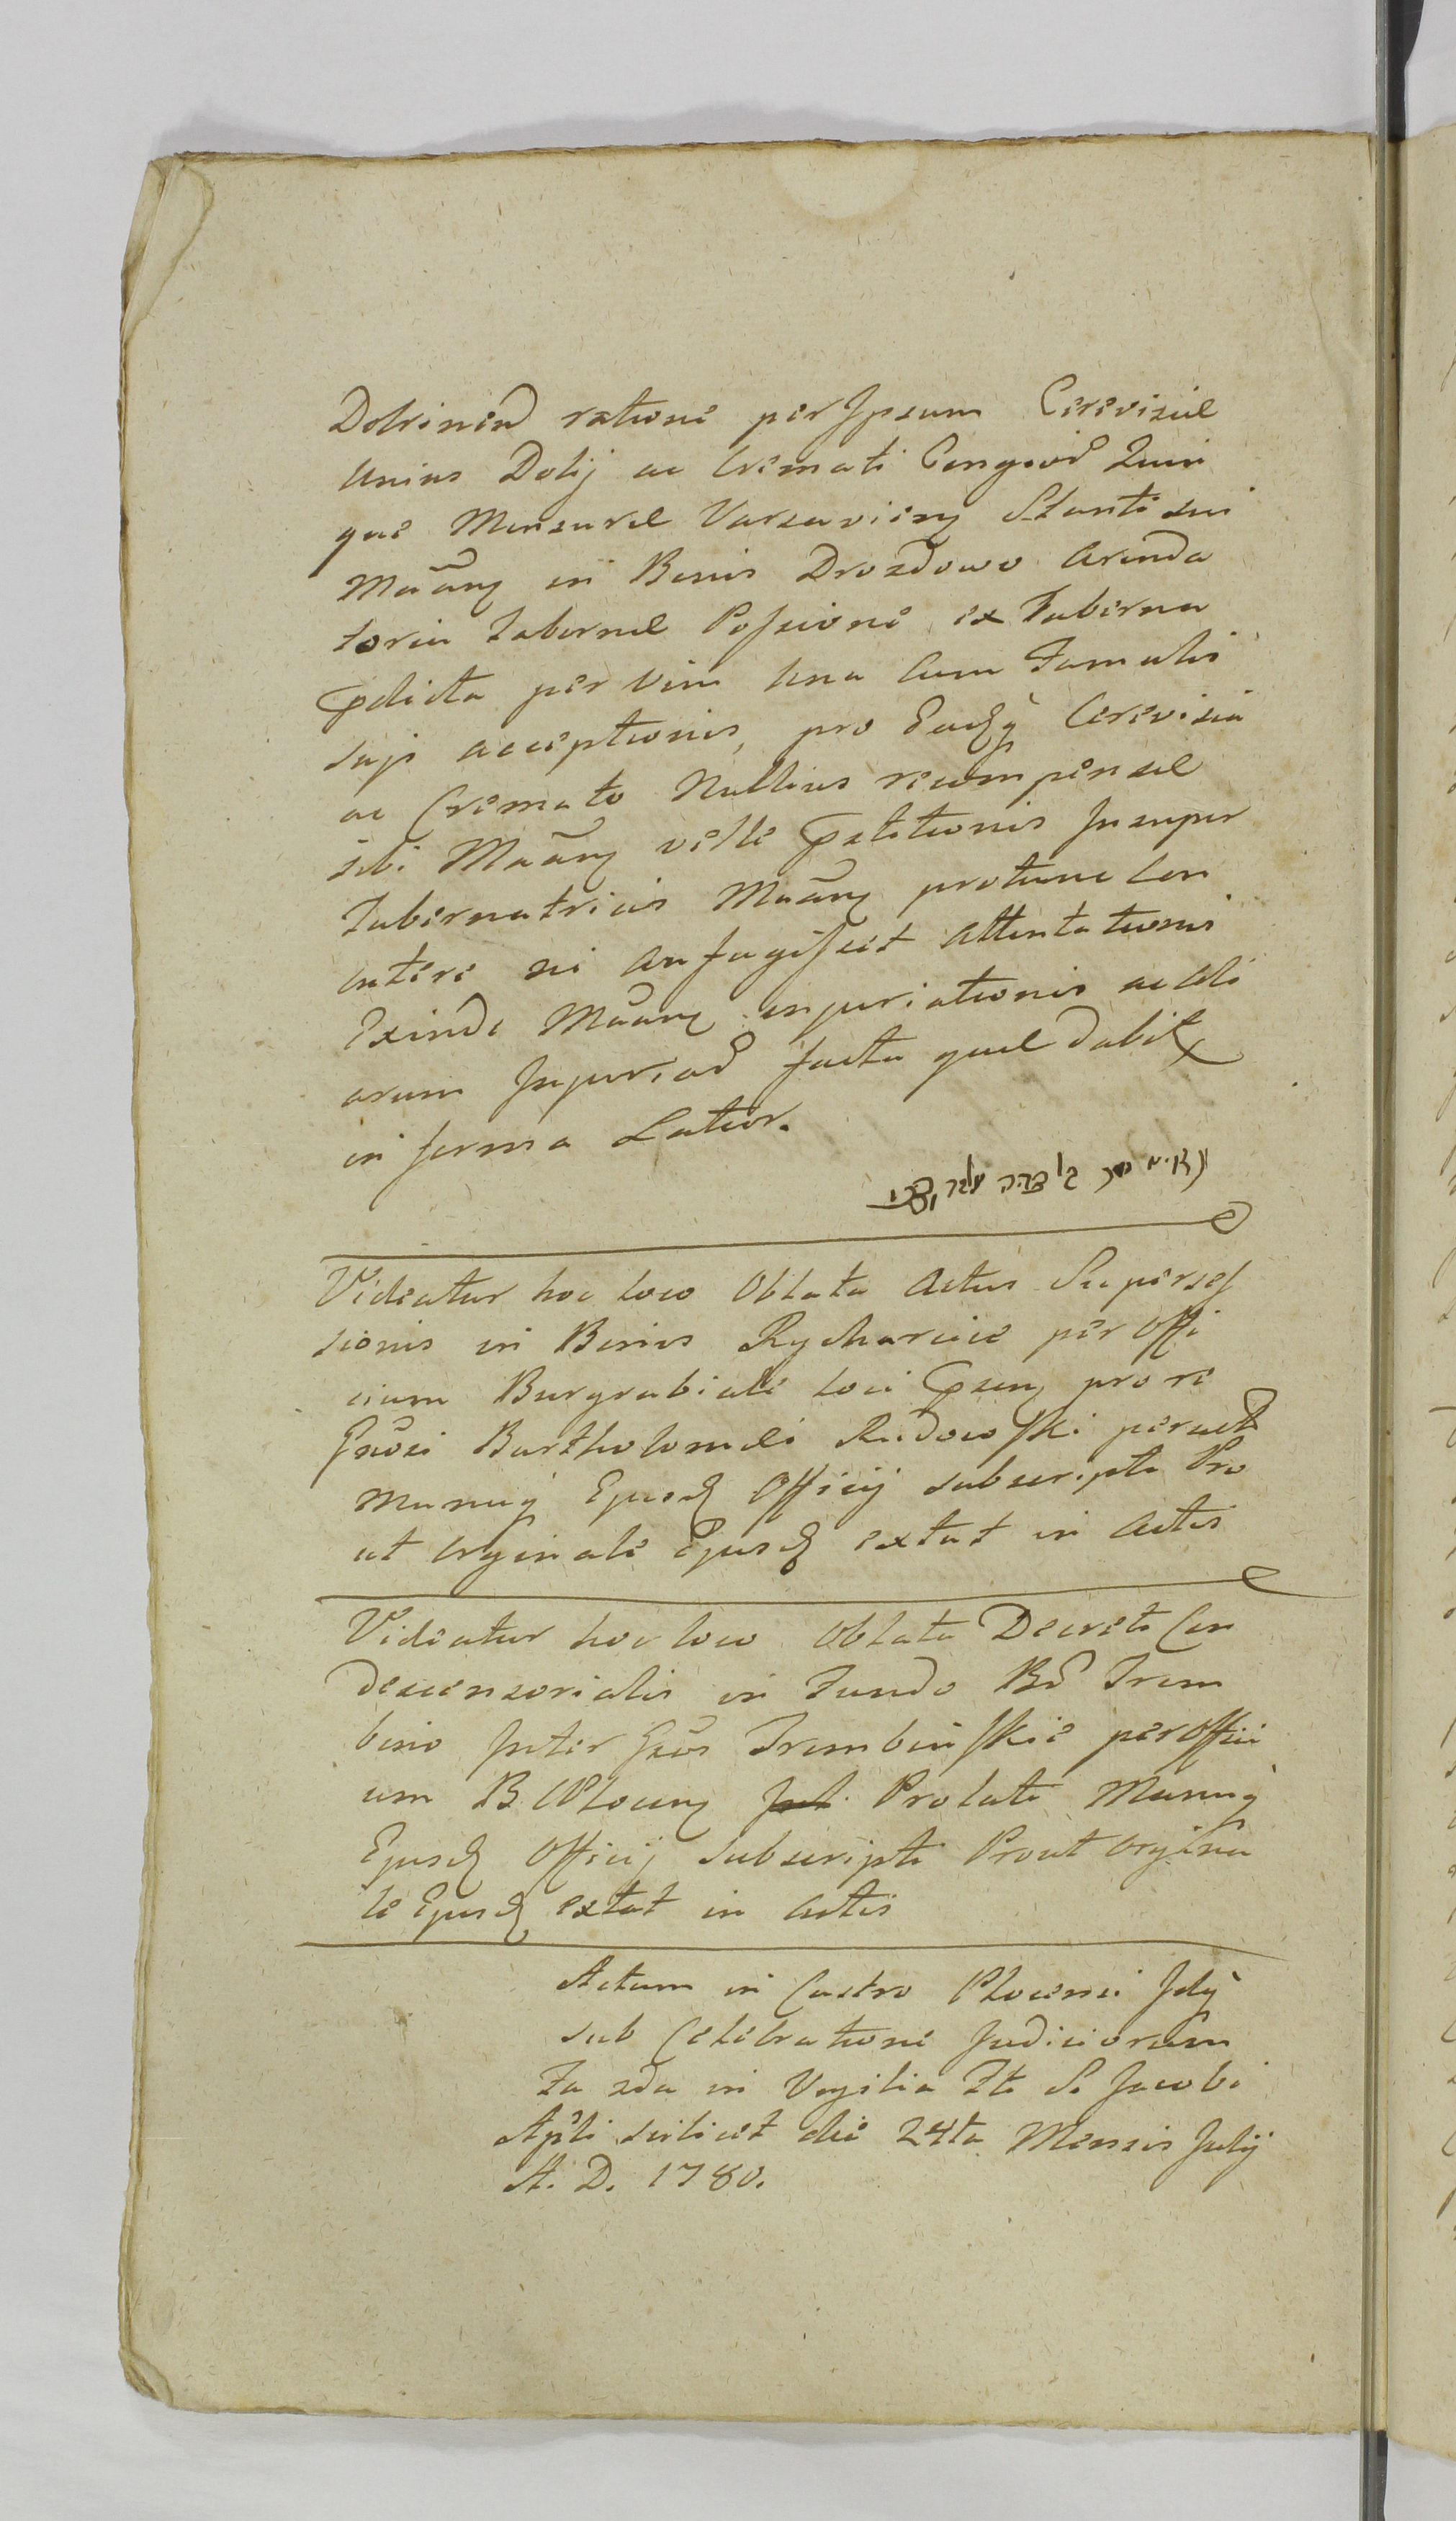 Dobrinen ratione per Ipsum Cerevisiæ
Unius Dolij ac Cremati Congior Quin
que Mensuræ Varsavien Stante sui
Maan in Bonis Drozdowo Arenda
toria Tabernæ Possione ex Taberna
pdicta per vim una Cum Famulis
suis acceptionis, pro Eadq Cerevisia
ac Cremato Nullius recompensæ
sibi Maan velle pstitionis Insuper
Tabernatricis Maan protunc Con
cutere ni aufugisset Attentationis
Exinde Maan injuriationis ac Ali
arum Injuriar facta quæ dabit
in forma Latior.
Videatur hoc loco Oblata Actus Supersess
sionis in Bonis Rycharcice per Offi
cium Burgrabiale loci psen pro re
Gnosi Bartholomæi Rudowski peract
Manuq Ejusd Officij subscripta Pro
ut Orginale Ejusd extat in Actis
Videatur hoc loco Oblata Decreti Con
descensorialis in Fundo Br Trem
bino Inter Gnos Trembinskie per Offici
um B. CPlocen Prolati Manuq
Ejusd Officij Subscripti Prout Orgina
le Ejusd extat in Actis
Actum in Castro Plocensi Idq
sub Celebratione Judiciorum
Fa 2da in Vigilia Fti S. Jacobi
Apli scilicet die 24ta Mensis Julij
A. D. 1780.